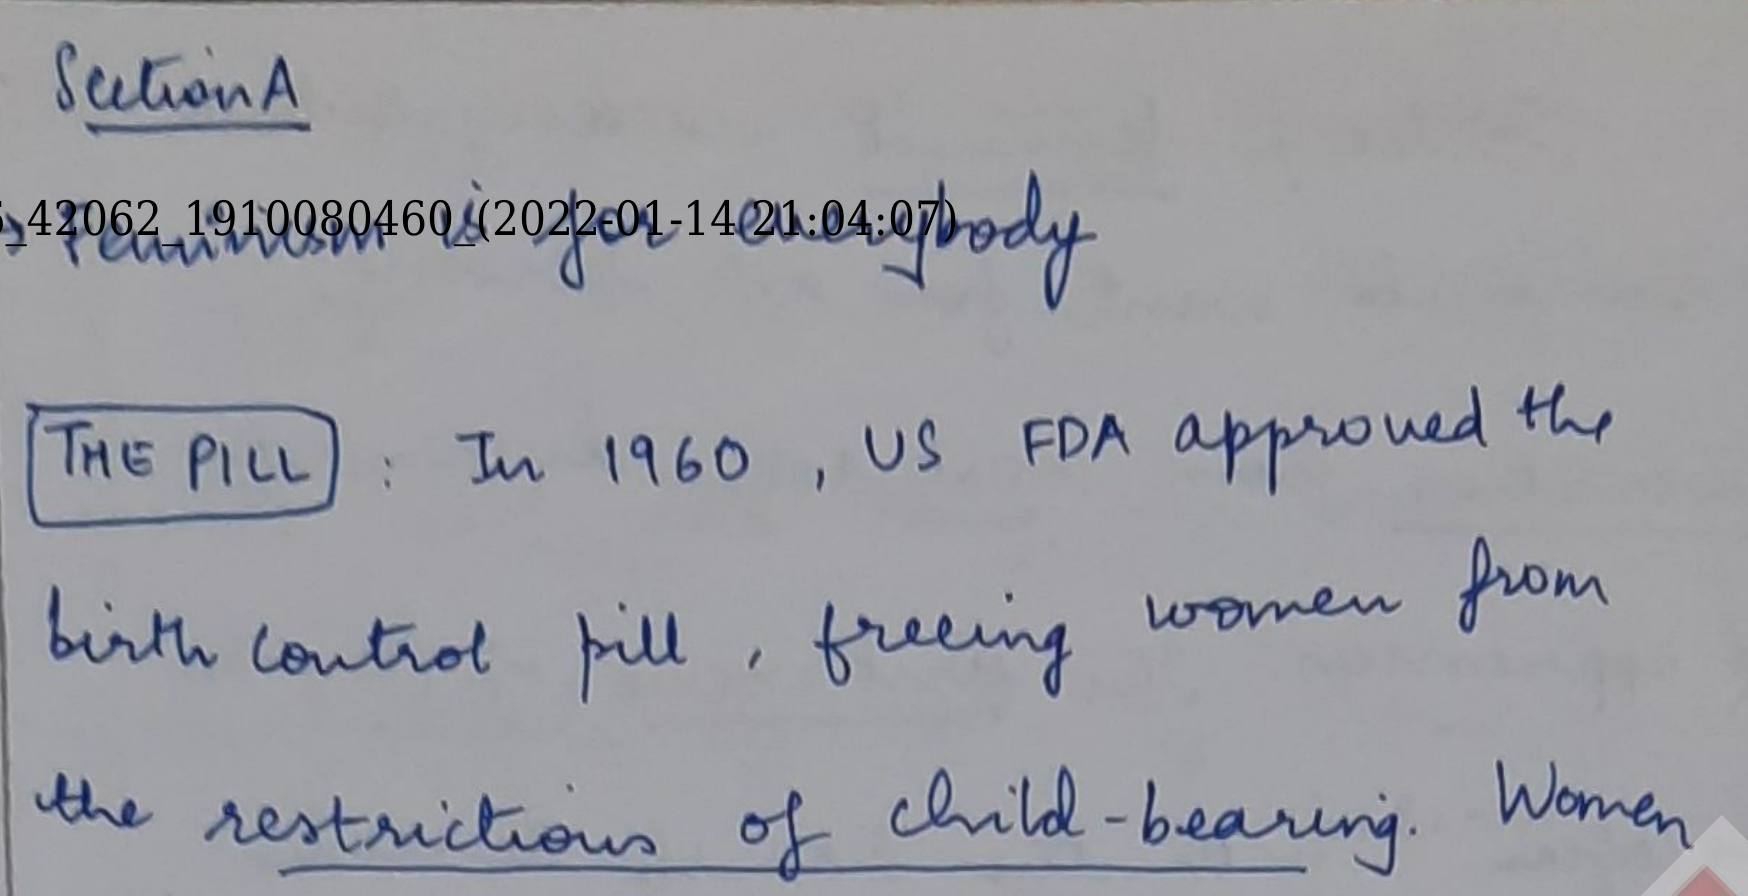 Section A
_42062_1910080460_(2022-01-14 21:04:07)
Feminism is for everybody
THE PILL : In 1960 , US FDA approved the
birth control pill , freeing women from
the restrictions of child-bearing. Women